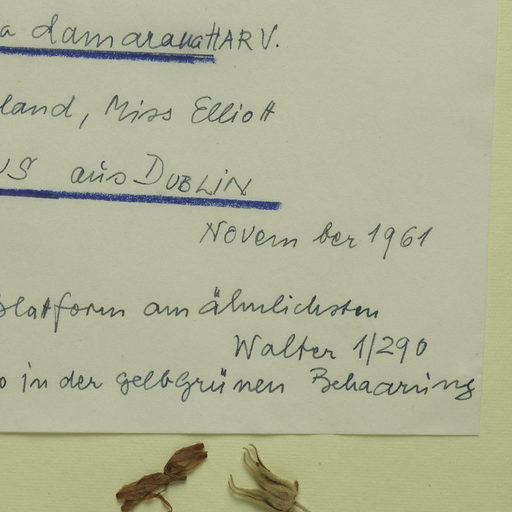 a damarana HARV.
land, Miss Elliott
US aus DUBLIN
November 1961
blattform am ähnlichsten
Walter 1/290
o in der gelbgrünen Behaarung